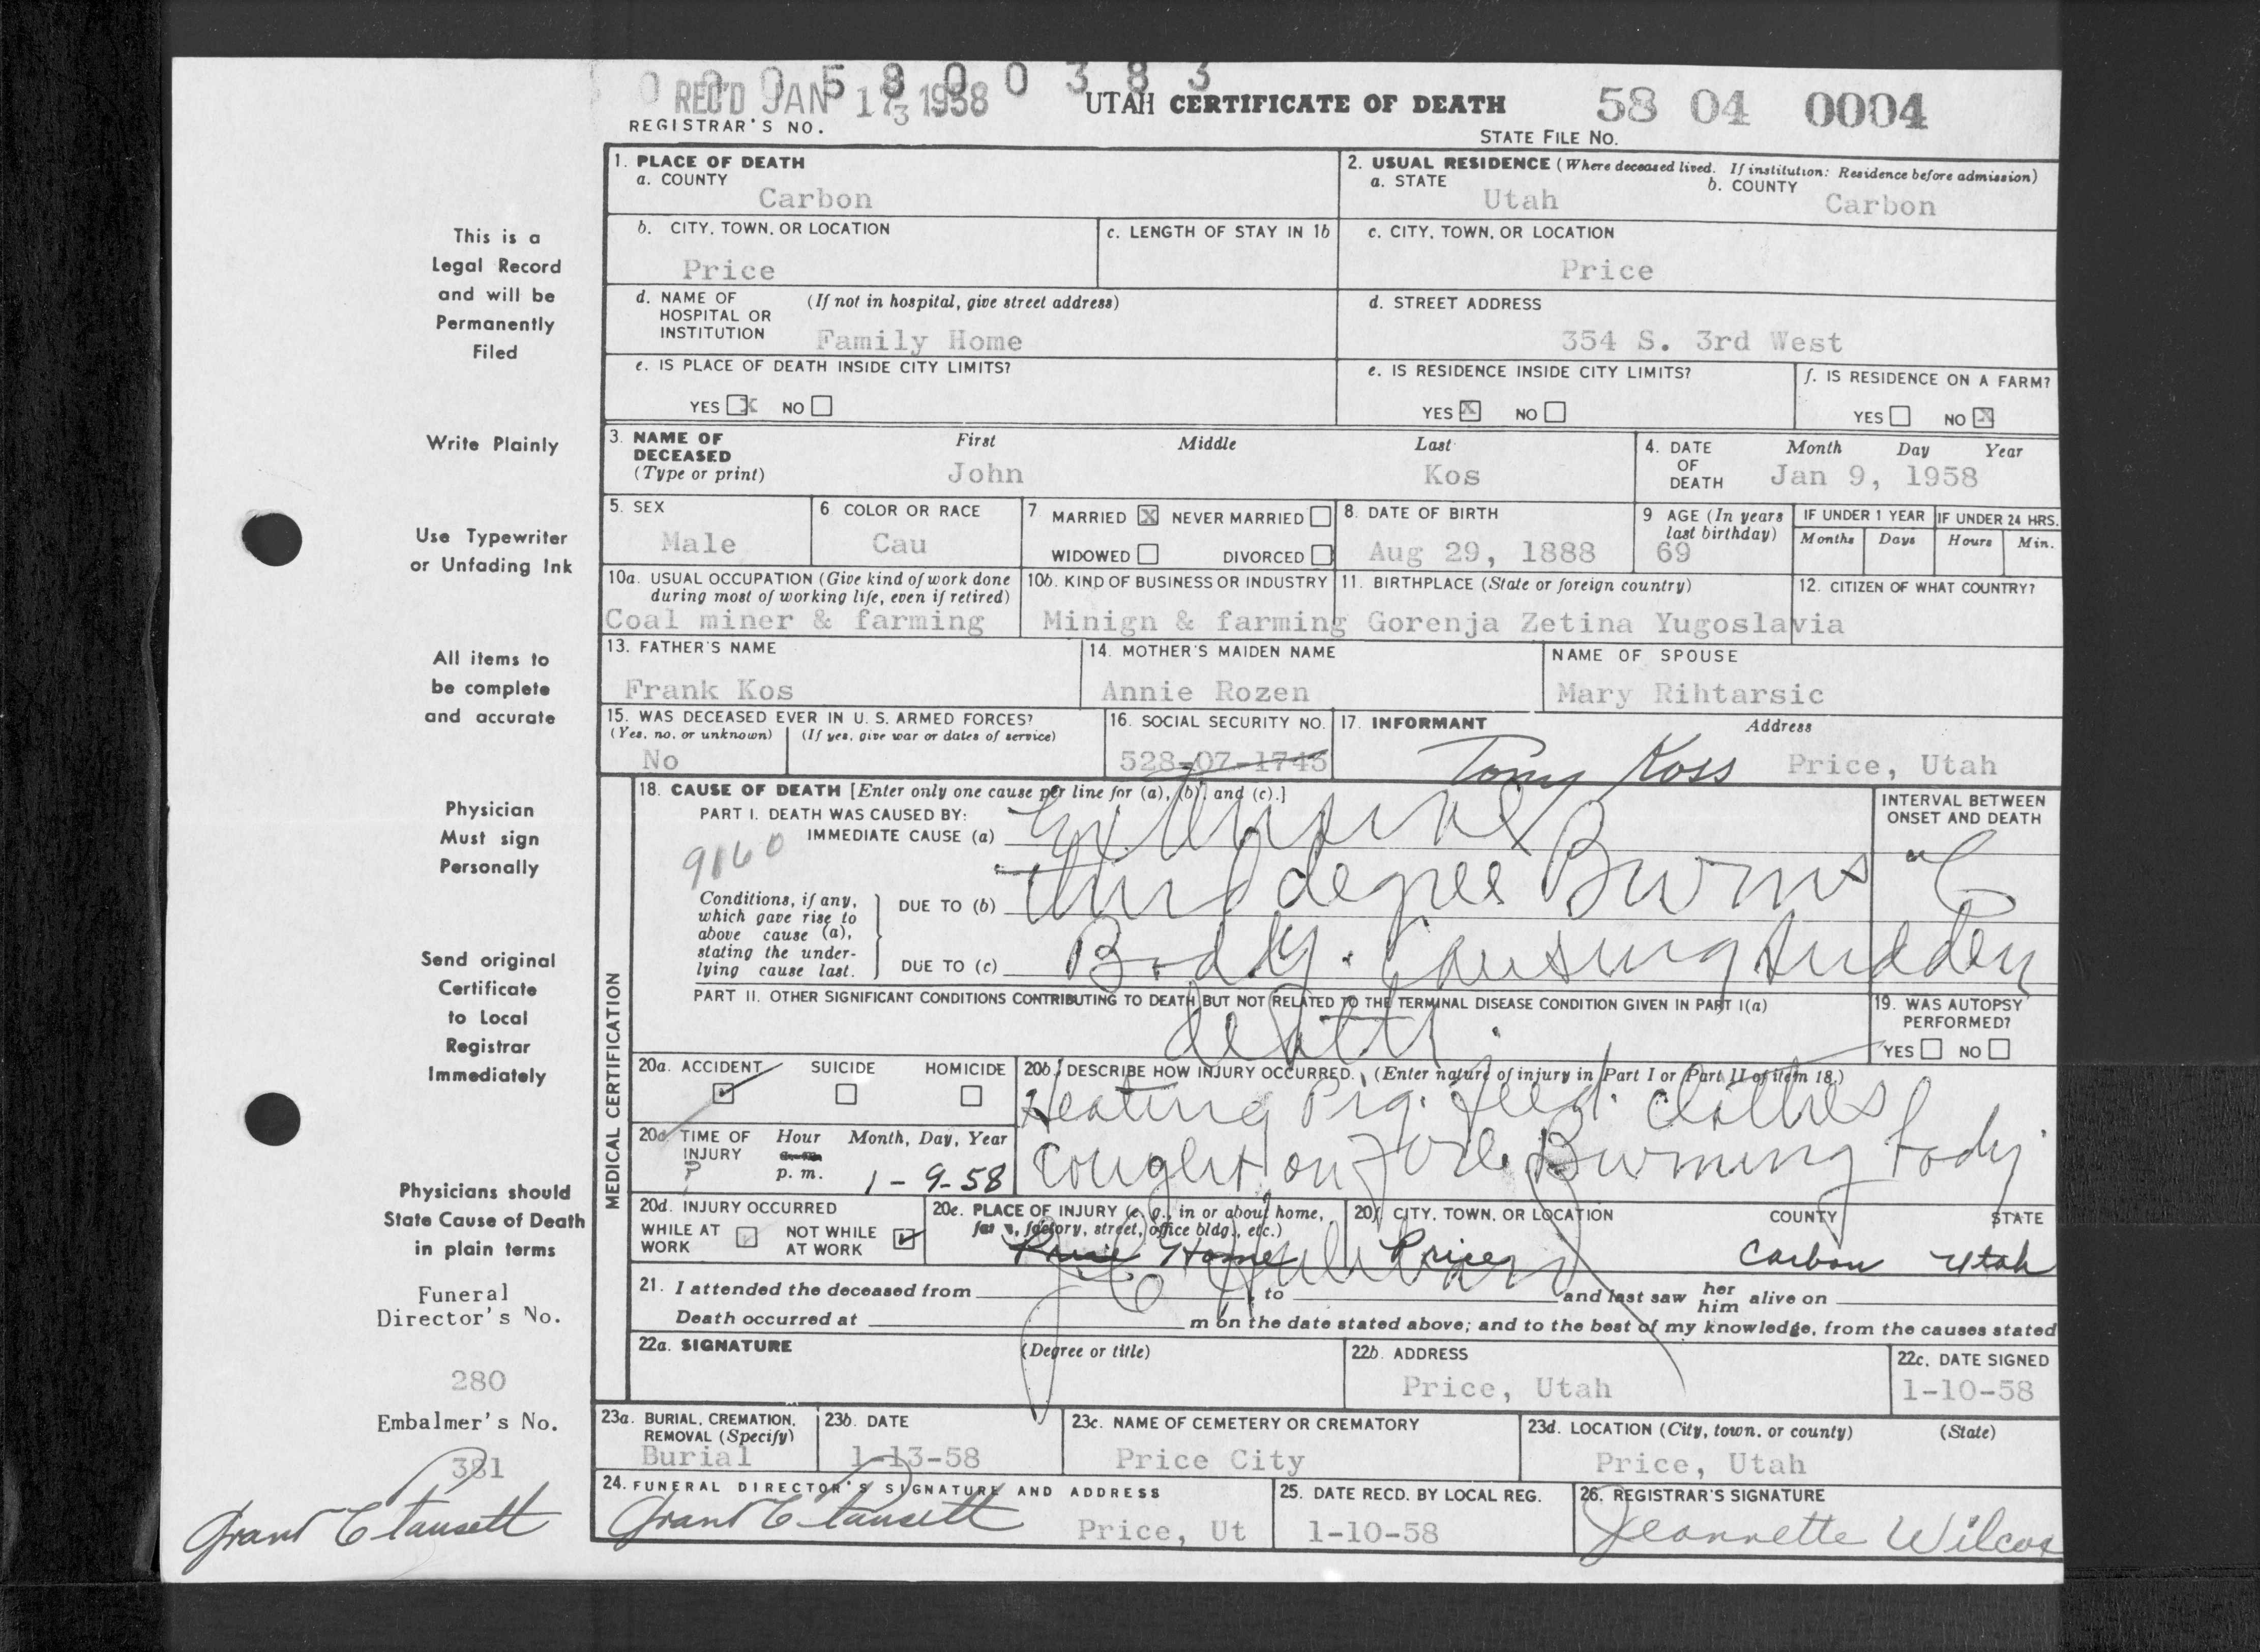 0 0 0 5 8 0 0 3 8 3
REC'D JAN 1 1958
UTAH CERTIFICATE OF DEATH
58 04 0004
REGISTRAR'S NO.
STATE FILE NO.
1. PLACE OF DEATH
a. COUNTY
Carbon
2. USUAL RESIDENCE (Where deceased lived. If institution: Residence before admission)
a. STATE
Utah
b. COUNTY
Carbon
b. CITY, TOWN, OR LOCATION
Price
c. LENGTH OF STAY IN 1b
c. CITY, TOWN, OR LOCATION
Price
d. NAME OF HOSPITAL OR INSTITUTION
(If not in hospital, give street address)
Family Home
d. STREET ADDRESS
354 S. 3rd West
e. IS PLACE OF DEATH INSIDE CITY LIMITS?
YES X NO
e. IS RESIDENCE INSIDE CITY LIMITS?
YES X NO
f. IS RESIDENCE ON A FARM?
YES NO X
3. NAME OF DECEASED (Type or print)
First Middle Last
John Kos
4. DATE OF DEATH
Month Day Year
Jan 9, 1958
5. SEX
Male
6 COLOR OR RACE
Cau
7 MARRIED X NEVER MARRIED
WIDOWED DIVORCED
8. DATE OF BIRTH
Aug 29, 1888
9 AGE (In years last birthday)
69
IF UNDER 1 YEAR
Months Days
IF UNDER 24 HRS.
Hours Min.
10a. USUAL OCCUPATION (Give kind of work done during most of working life, even if retired)
Coal miner & farming
10b. KIND OF BUSINESS OR INDUSTRY
Minign & farming
11. BIRTHPLACE (State or foreign country)
Gorenja Zetina Yugoslavia
12. CITIZEN OF WHAT COUNTRY?
13. FATHER'S NAME
Frank Kos
14. MOTHER'S MAIDEN NAME
Annie Rozen
NAME OF SPOUSE
Mary Rihtarsic
15. WAS DECEASED EVER IN U. S. ARMED FORCES?
(Yes, no, or unknown) (If yes, give war or dates of service)
No
16. SOCIAL SECURITY NO.
528-07-1745
17. INFORMANT Address
Tony Koss Price, Utah
MEDICAL CERTIFICATION
18. CAUSE OF DEATH [Enter only one cause per line for (a), (b), and (c).]
PART I. DEATH WAS CAUSED BY:
IMMEDIATE CAUSE (a)
Extensive
9160
INTERVAL BETWEEN ONSET AND DEATH
Conditions, if any, which gave rise to above cause (a), stating the underlying cause last.
DUE TO (b)
third degree Burns
DUE TO (c)
Body. Causing sudden
PART II. OTHER SIGNIFICANT CONDITIONS CONTRIBUTING TO DEATH BUT NOT RELATED TO THE TERMINAL DISEASE CONDITION GIVEN IN PART I(a)
death.
19. WAS AUTOPSY PERFORMED?
YES NO
20a. ACCIDENT SUICIDE HOMICIDE
20b. DESCRIBE HOW INJURY OCCURRED. (Enter nature of injury in Part I or Part II of item 18.)
Heating Pig. feed. Clothes
Cought on fire. Burning body
20c. TIME OF INJURY
Hour Month, Day, Year
a. m.
p. m.
?
1-9-58
20d. INJURY OCCURRED
WHILE AT WORK NOT WHILE AT WORK
20e. PLACE OF INJURY (e. g., in or about home, farm, factory, street, office bldg., etc.)
Price Home
20f. CITY, TOWN, OR LOCATION COUNTY STATE
Price Carbon Utah
21. I attended the deceased from , to and last saw her him alive on
Death occurred at m on the date stated above; and to the best of my knowledge, from the causes stated
22a. SIGNATURE
(Degree or title)
22b. ADDRESS
Price, Utah
22c. DATE SIGNED
1-10-58
23a. BURIAL, CREMATION, REMOVAL (Specify)
Burial
23b. DATE
1-13-58
23c. NAME OF CEMETERY OR CREMATORY
Price City
23d. LOCATION (City, town, or county) (State)
Price, Utah
24. FUNERAL DIRECTOR'S SIGNATURE AND ADDRESS
Grant C Fausett Price, Ut
25. DATE RECD. BY LOCAL REG.
1-10-58
26. REGISTRAR'S SIGNATURE
Jeannette Wilcox
This is a
Legal Record
and will be
Permanently
Filed
Write Plainly
Use Typewriter
or Unfading Ink
All items to
be complete
and accurate
Physician
Must sign
Personally
Send original
Certificate
to Local
Registrar
Immediately
Physicians should
State Cause of Death
in plain terms
Funeral
Director's No.
280
Embalmer's No.
381
Grant C Fausett